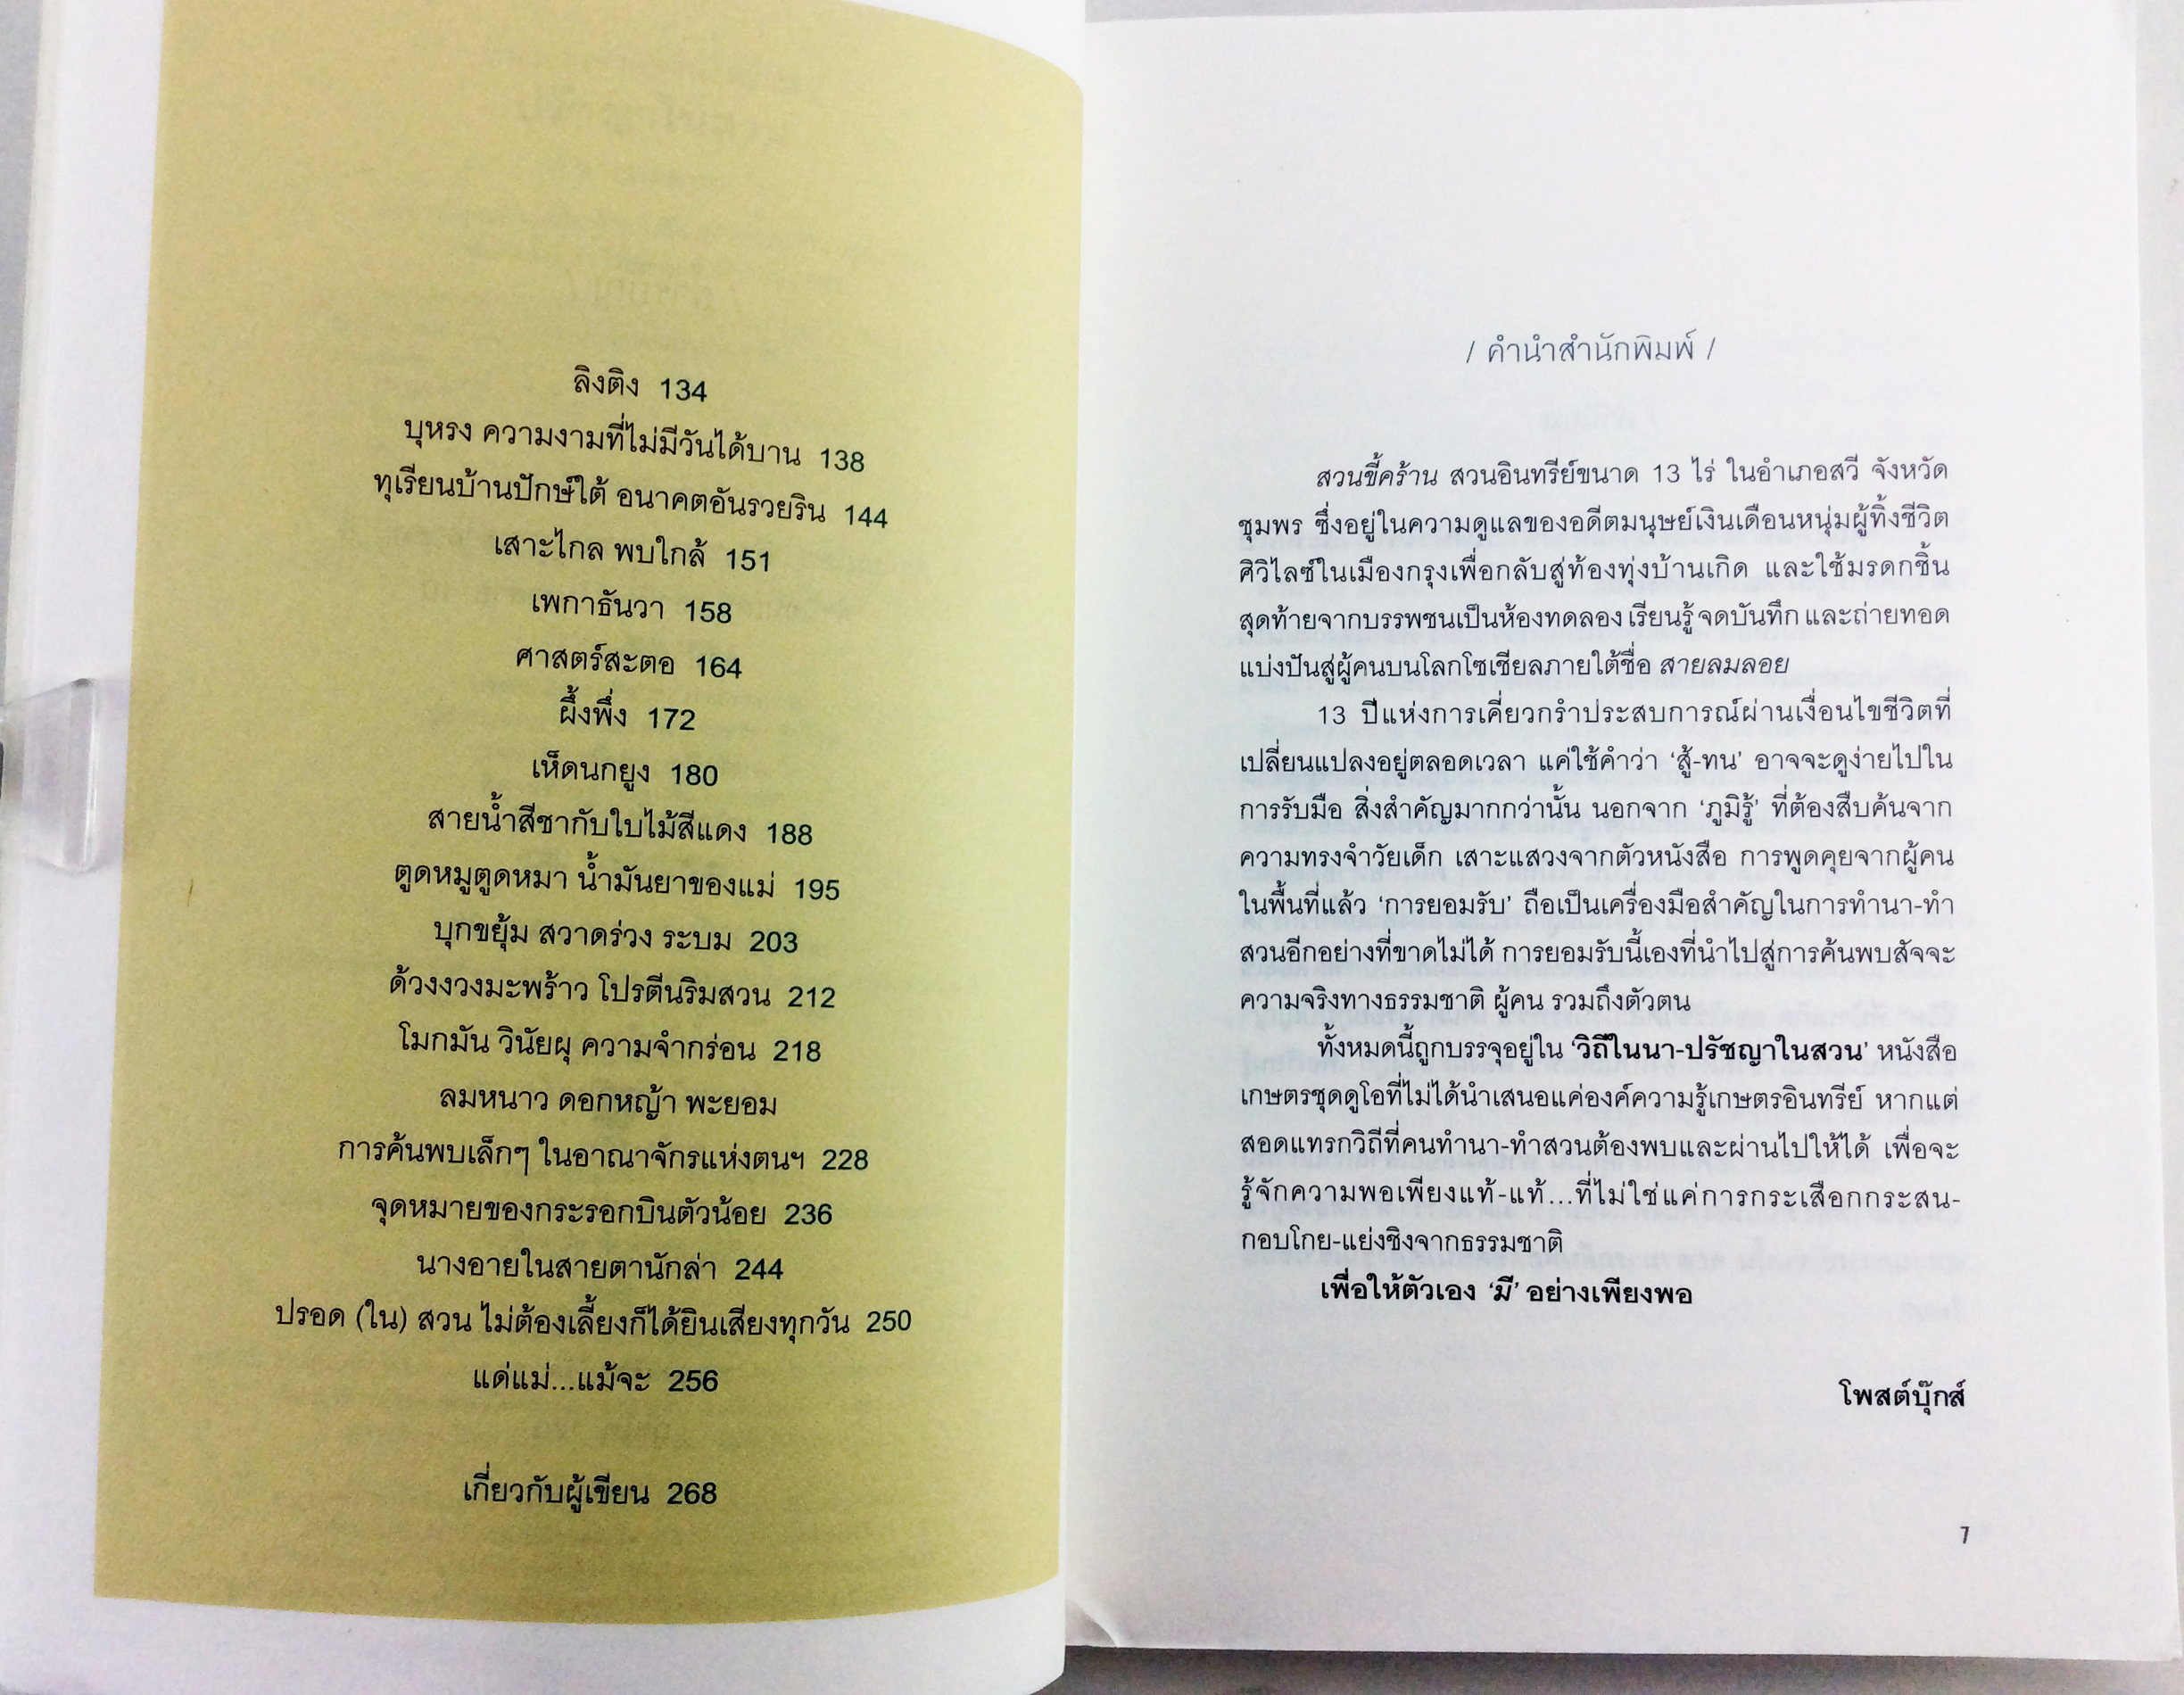 ลิงติง 134
บุหรง ความงามที่ไม่มีวันได้บาน 138
ทุเรียนบ้านปักษ์ใต้ อนาคตอันรวยริน 144
เสาะไกล พบใกล้ 151
เพกาธันวา 158
ศาสตร์สะตอ 164
ผึ้งพึ่ง 172
เห็ดนกยูง 180
สายน้ำสีชากับใบไม้สีแดง 188
ตูดหมูตูดหมา น้ำมันยาของแม่ 195
บุกขยุ้ม สวาดร่วง ระบม 203
ด้วงงวงมะพร้าว โปรตีนริมสวน 212
โมกมัน วินัยผุ ความจำกร่อน 218
ลมหนาว ดอกหญ้า พะยอม
การค้นพบเล็กๆ ในอาณาจักรแห่งตนฯ 228
จุดหมายของกระรอกบินตัวน้อย 236
นางอายในสายตานักล่า 244
ปรอด (ใน) สวน ไม่ต้องเลี้ยงก็ได้ยินเสียงทุกวัน 250
แด่แม่...แม้จะ 256
เกี่ยวกับผู้เขียน 268
/ คำนำสำนักพิมพ์ /
สวนขี้คร้าน สวนอินทรีย์ขนาด 13 ไร่ ในอำเภอสวี จังหวัด
ชุมพร ซึ่งอยู่ในความดูแลของอดีตมนุษย์เงินเดือนหนุ่มผู้ทิ้งชีวิต
ศิวิไลซ์ในเมืองกรุงเพื่อกลับสู่ท้องทุ่งบ้านเกิด และใช้มรดกชิ้น
สุดท้ายจากบรรพชนเป็นห้องทดลอง เรียนรู้ จดบันทึก และถ่ายทอด
แบ่งปันสู่ผู้คนบนโลกโซเชียลภายใต้ชื่อ สายลมลอย
13 ปีแห่งการเคี่ยวกรำประสบการณ์ผ่านเงื่อนไขชีวิตที่
เปลี่ยนแปลงอยู่ตลอดเวลา แค่ใช้คำว่า ‘สู้-ทน’ อาจจะดูง่ายไปใน
การรับมือ สิ่งสำคัญมากกว่านั้น นอกจาก ‘ภูมิรู้’ ที่ต้องสืบค้นจาก
ความทรงจำวัยเด็ก เสาะแสวงจากตัวหนังสือ การพูดคุยจากผู้คน
ในพื้นที่แล้ว ‘การยอมรับ’ ถือเป็นเครื่องมือสำคัญในการทำนา-ทำ
สวนอีกอย่างที่ขาดไม่ได้ การยอมรับนี้เองที่นำไปสู่การค้นพบสัจจะ
ความจริงทางธรรมชาติ ผู้คน รวมถึงตัวตน
ทั้งหมดนี้ถูกบรรจุอยู่ใน ‘วิถีในนา-ปรัชญาในสวน’ หนังสือ
เกษตรชุดดูโอที่ไม่ได้นำเสนอแค่องค์ความรู้เกษตรอินทรีย์ หากแต่
สอดแทรกวิถีที่คนทำนา-ทำสวนต้องพบและผ่านไปให้ได้ เพื่อจะ
รู้จักความพอเพียงแท้-แท้...ที่ไม่ใช่แค่การกระเสือกกระสน-
กอบโกย-แย่งชิงจากธรรมชาติ
เพื่อให้ตัวเอง ‘มี’ อย่างเพียงพอ
โพสต์บุ๊กส์
7